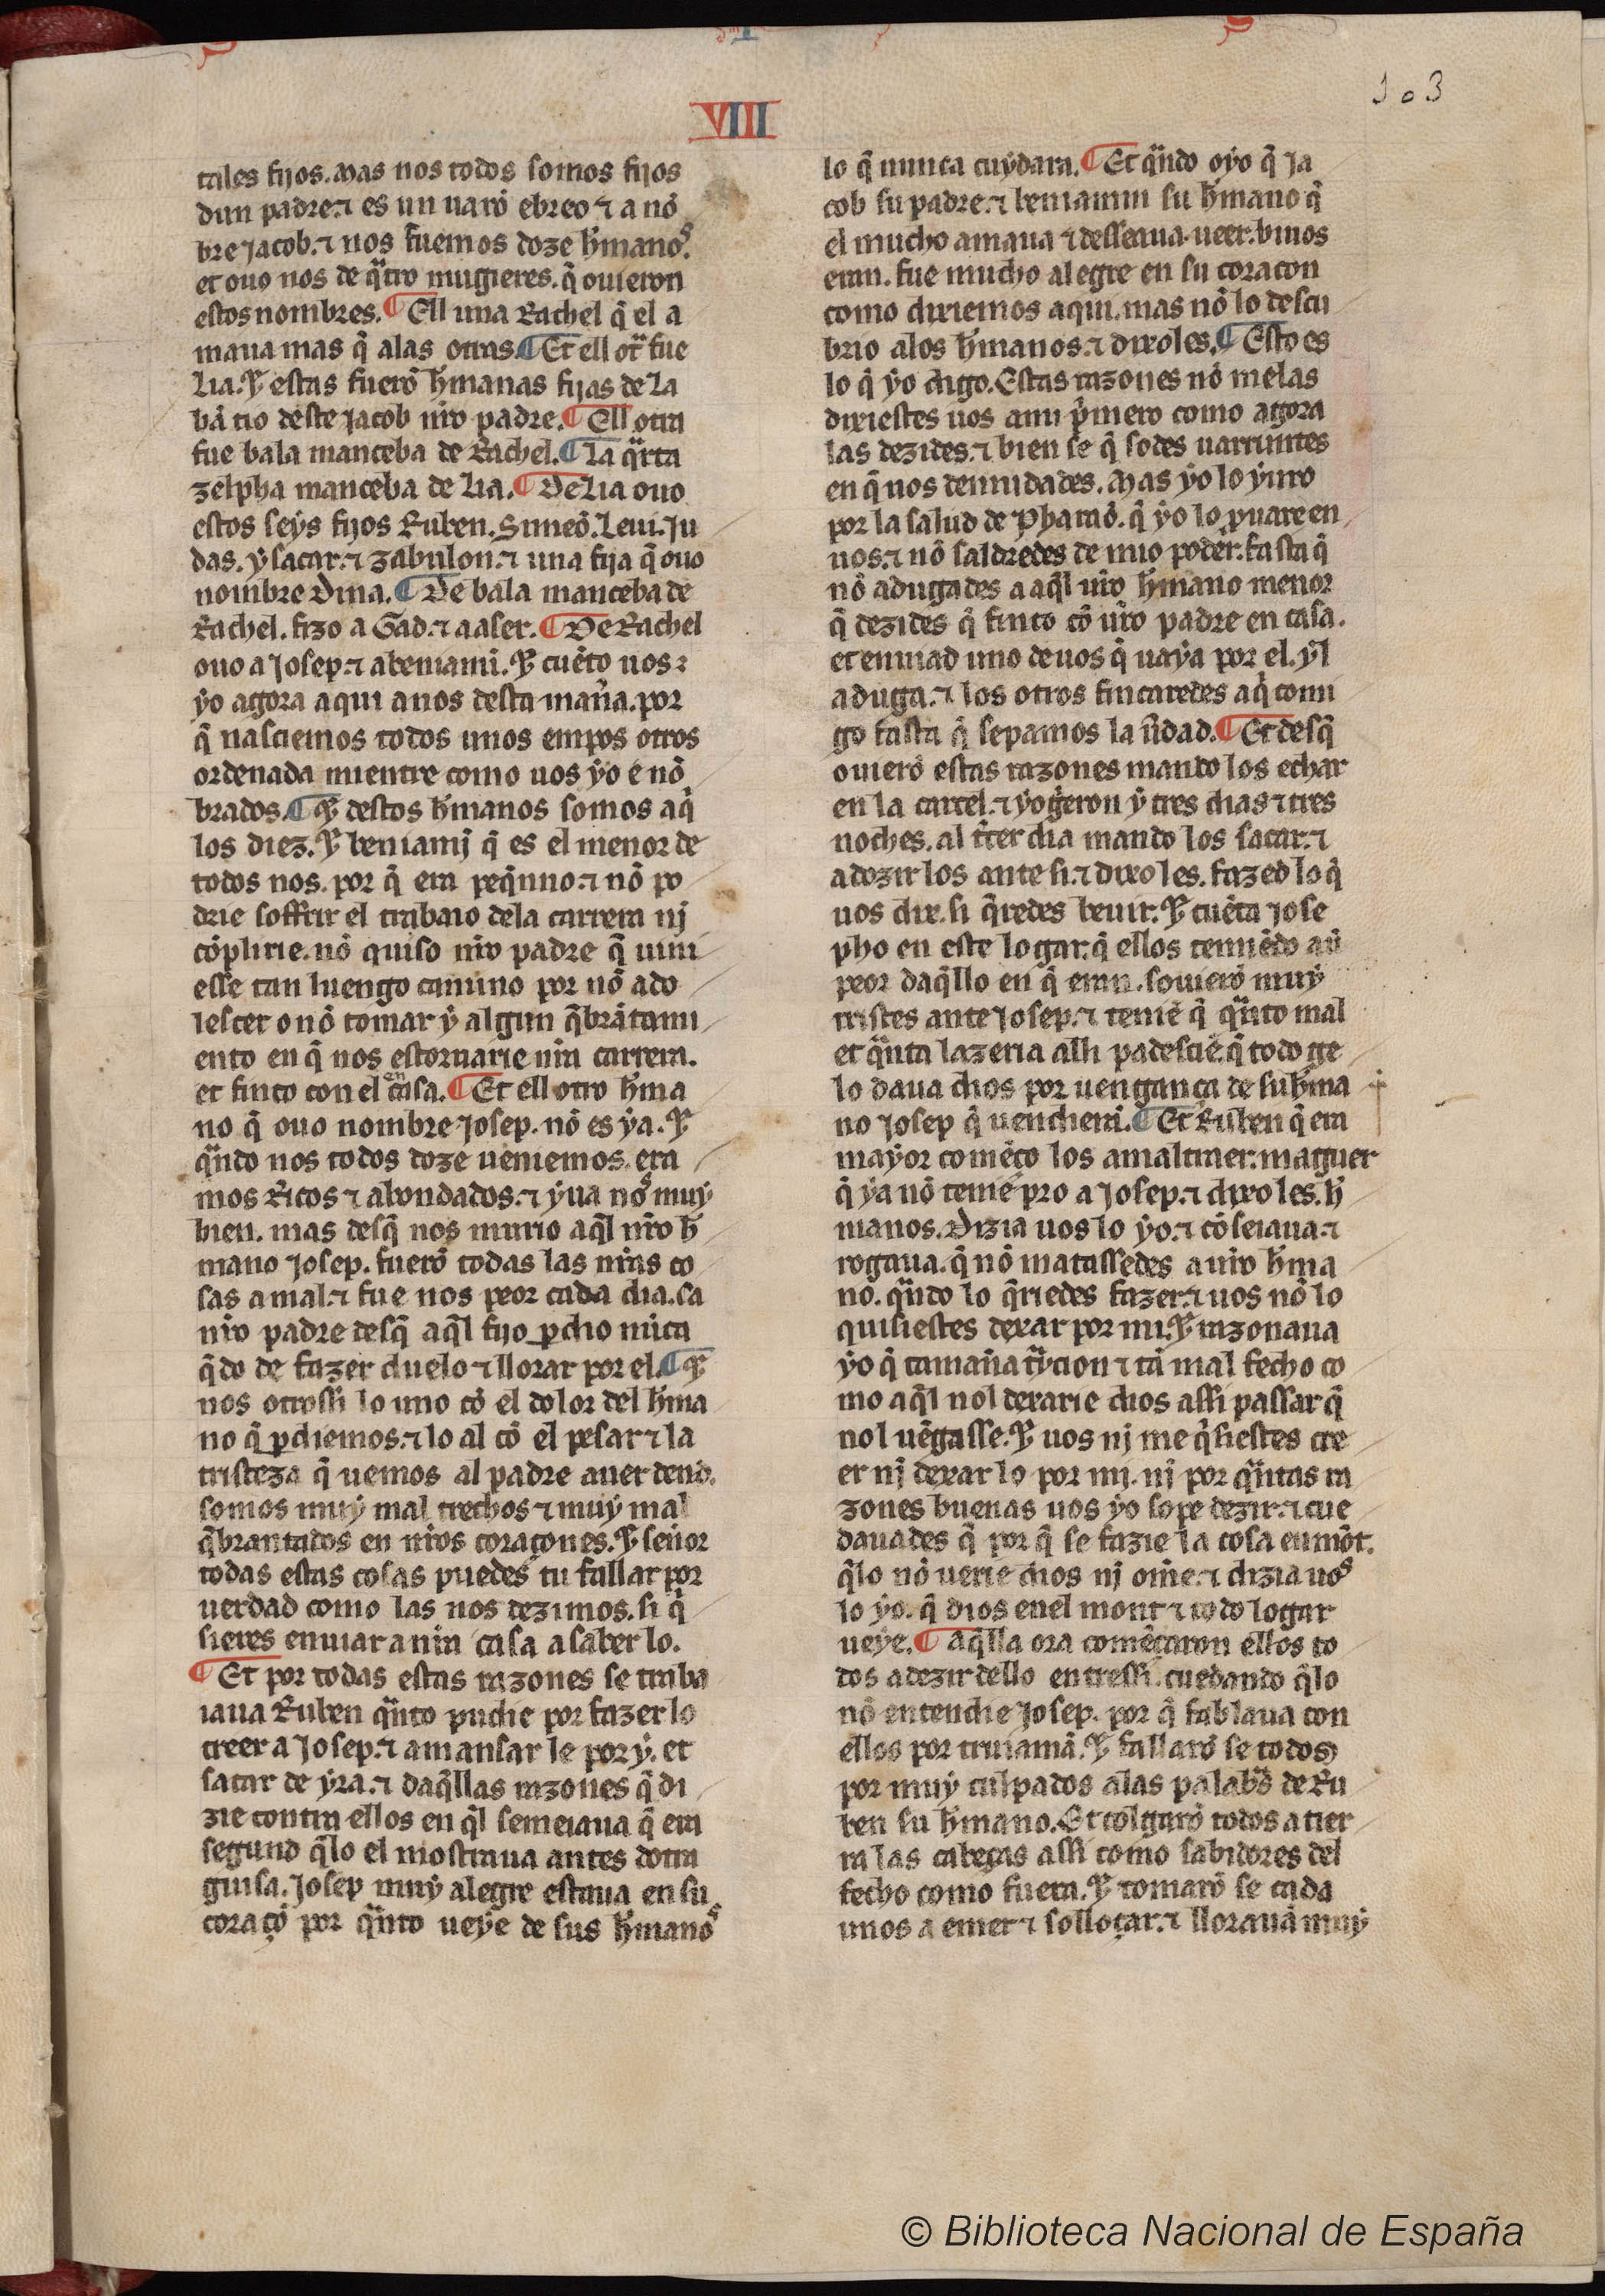 VIII
103
tales fijos. Mas nos todos somos fijos
dun padre. ⁊ es un uarõ ebreo ⁊ a nõ
bre Jacob. ⁊ nos fuemos doze hr̃manos.
et ouo nos de qͣtro mugieres. q̃ ouieron
estos nombres. ¶ Ell una Rachel q̃ el a
maua mas q̃ alas otras. ¶ Et ell otͣ fue
Lia. ⁊ estas fuerõ hr̃manas fijas de La
bã tio deste Jacob nr̃o padre. ¶ Ell otra
fue bala manceba de Rachel. ¶ La qͣrta
zelpha manceba de Lia. ¶ De Lia ouo
estos seys fijos Ruben. Simeõ. Leui. Ju
das. ysacar. ⁊ zabulon. ⁊ una fija q̃ ouo
nombre Dina. ¶ De bala manceba de
Rachel. fizo a Gad. ⁊ a aser. ¶ De Rachel
ouo a Josep. ⁊ abeniami. ⁊ cuẽto uos
yo agora aqui auos desta mañа. por
q̃ nasciemos todos unos empos otros
ordenada mientre como uos yo e nõ
brados. ¶ ⁊ destos hr̃manos somos aq̃
los diez. ⁊ beniamj q̃ es el menor de
todos nos. por q̃ era peq̃nno. ⁊ nõ po
drie soffrir el trabaio dela carrera nj
cõplirie. nõ quiso nr̃o padre q̃ uini
esse tan luengo camino por nõ ado
lescer o nõ tomar y algun q̃brãtami
ento en q̃ nos estoruarie nr̃a carrera.
et finco con el en casa. ¶ Et ell otro hr̃ma
no q̃ ouo nombre Josep. nõ es ya. ⁊
qͣndo nos todos doze ueniemos. era
mos Ricos ⁊ abondados. ⁊ yua nos muy
bien. mas desq̃ nos murio aq̃l nr̃o hr̃
mano Josep. fuerõ todas las nr̃as co
sas a mal. ⁊ fue nos peor cada dia. ca
nr̃o padre desq̃ aq̃l fijo ꝑdio nũca
q̃do de fazer duelo ⁊ llorar por el. ¶ ⁊
nos otrossi lo uno cõ el dolor del hr̃ma
no q̃ ꝑdiemos. ⁊ lo al cõ el pesar ⁊ la
tristeza q̃ uemos al padre auer dend.
somos muy mal trechos ⁊ muy mal
q̃brantados en nr̃os coraçones. ⁊ señor
todas estas cosas puedes tu fallar por
uerdad como las nos dezimos. si q̃
sieres enuiar a nr̃a casa a saber lo.
¶ Et por todas estas razones se traba
iaua Ruben qͣnto pudie por fazer lo
creer a Josep. ⁊ amansar le por y. et
sacar de yra. ⁊ daq̃llas razones q̃ di
zie contra ellos en q̃l semeiaua q̃ era
segund q̃lo el mostraua antes dotra
guisa. Josep muy alegre estaua en su
coraçõ por qͣnto ueye de sus hr̃manos
lo q̃ nunca cuydara. ¶ Et qͣndo oyo q̃ Ja
cob su padre. ⁊ beniamin su hr̃mano q̃
el mucho amaua ⁊ desseaua ueer. biuos
eran. fue mucho alegre en su coracon
como dixiemos aqui. mas nõ lo descu
brio alos hr̃manos. ⁊ dixo les. ¶ Esto es
lo q̃ yo digo. Estas razones nõ melas
dixiestes uos ami p̃mero como agora
las dezides. ⁊ bien se q̃ sodes uarruntes
en q̃ nos demudades. Mas yo lo yuro
por la salud de Pharaõ. q̃ yo lo ꝓuare en
uos. ⁊ nõ saldredes de mio poder. fasta q̃
nõ adugades a aq̃l ur̃o hr̃mano menor
q̃ dezides q̃ finco cõ ur̃o padre en casa.
et enuiad uno de uos q̃ uaya por el. yl
aduga. ⁊ los otros fincaredes aq̃ comi
go fasta q̃ sepamos la ũdad. ¶ Et desq̃
ouierõ estas razones mando los echar
en la carcel. ⁊ yog̃eron y tres dias ⁊ tres
noches. al t̃cer dia mando los sacar. ⁊
adozir los ante si. ⁊ dixo les. fazed lo q̃
uos dix. si q̃redes beuir. ⁊ cuẽta Jose
pho en este logar. q̃ ellos temiẽdo aũ
peor daq̃llo en q̃ eran. souierõ muy
tristes ante Josep. ⁊ teniẽ q̃ qͣnto mal
et qͣnta lazeria alli padesciẽ. q̃ todo ge
lo daua dios por uengança de su hr̃ma
no Josep q̃ uendiera. ¶ Et Ruben q̃ era
mayor comẽço los amaltraer. maguer
q̃ ya nõ tenie pro a Josep. ⁊ dixo les. hr̃
manos. Dizia uos lo yo. ⁊ cõseiaua. ⁊
rogaua. q̃ nõ matassedes a nr̃o hr̃ma
no. qͣndo lo q̃riedes fazer. ⁊ uos nõ lo
quisiestes dexar por mi. ⁊ razonaua
yo q̃ tamaña tͣycion ⁊ tã mal fecho co
mo aq̃l nol dexarie dios assi passar q̃
nol uẽgasse. ⁊ uos nj me q̃siestes cre
er nj dexar lo por mi. nj por qͣntas ra
zones buenas uos yo sope dezir. ⁊ cue
dauades q̃ por q̃ se fazie la cosa en mõt.
q̃lo nõ uerie dios nj om̃e. ⁊ dizia uos
lo yo. q̃ dios enel mont ⁊ todo logar
ueye. ¶ Aq̃lla ora comẽçaron ellos to
dos a dezir dello entressi. cuedando q̃lo
nõ entendie Josep. por q̃ fablaua con
ellos por truiamã. ⁊ fallarõ se todos
por muy culpados alas palabͣs de Ru
ben su hr̃mano. Et colgarõ todos a tier
ra las cabeças assi como sabidores del
fecho como fuera. ⁊ tomarõ se cada
unos a emer ⁊ solloçar. ⁊ llorauã muy
© Biblioteca Nacional de España